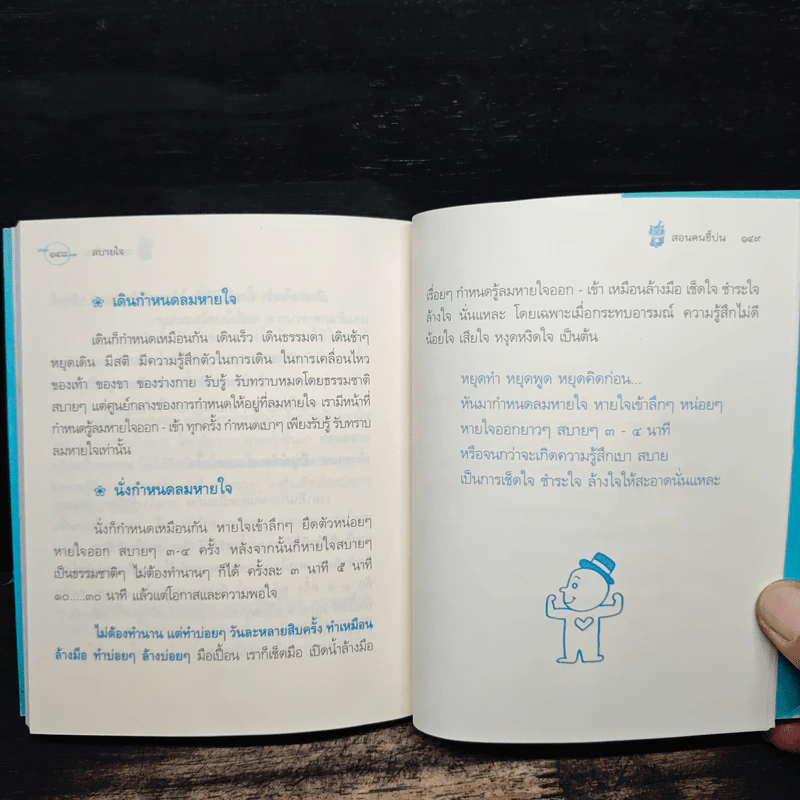 ๑๔๘ สบายใจ
เดินกำหนดลมหายใจ
เดินก็กำหนดเหมือนกัน เดินเร็ว เดินธรรมดา เดินช้าๆ
หยุดเดิน มีสติ มีความรู้สึกตัวในการเดิน ในการเคลื่อนไหว
ของเท้า ของขา ของร่างกาย รับรู้ รับทราบหมดโดยธรรมชาติ
สบายๆ แต่ศูนย์กลางของการกำหนดให้อยู่ที่ลมหายใจ เรามีหน้าที่
กำหนดรู้ลมหายใจออก - เข้า ทุกครั้ง กำหนดเบาๆ เพียงรับรู้ รับทราบ
ลมหายใจเท่านั้น
นั่งกำหนดลมหายใจ
นั่งก็กำหนดเหมือนกัน หายใจเข้าลึกๆ ยืดตัวหน่อยๆ
หายใจออก สบายๆ ๓-๔ ครั้ง หลังจากนั้นก็หายใจสบายๆ
เป็นธรรมชาติๆ ไม่ต้องทำนานๆ ก็ได้ ครั้งละ ๓ นาที ๕ นาที
๑๐.....๓๐ นาที แล้วแต่โอกาสและความพอใจ
ไม่ต้องทำนาน แต่ทำบ่อยๆ วันละหลายสิบครั้ง ทำเหมือน
ล้างมือ ทำบ่อยๆ ล้างบ่อยๆ มือเปื้อน เราก็เช็ดมือ เปิดน้ำล้างมือ
สอนคนขี้บ่น ๑๔๙
เรื่อยๆ กำหนดรู้ลมหายใจออก - เข้า เหมือนล้างมือ เช็ดใจ ชำระใจ
ล้างใจ นั่นแหละ โดยเฉพาะเมื่อกระทบอารมณ์ ความรู้สึกไม่ดี
น้อยใจ เสียใจ หงุดหงิดใจ เป็นต้น
หยุดทำ หยุดพูด หยุดคิดก่อน...
หันมากำหนดลมหายใจ หายใจเข้าลึกๆ หน่อยๆ
หายใจออกยาวๆ สบายๆ ๓ - ๔ นาที
หรือจนกว่าจะเกิดความรู้สึกเบา สบาย
เป็นการเช็ดใจ ชำระใจ ล้างใจให้สะอาดนั่นแหละ